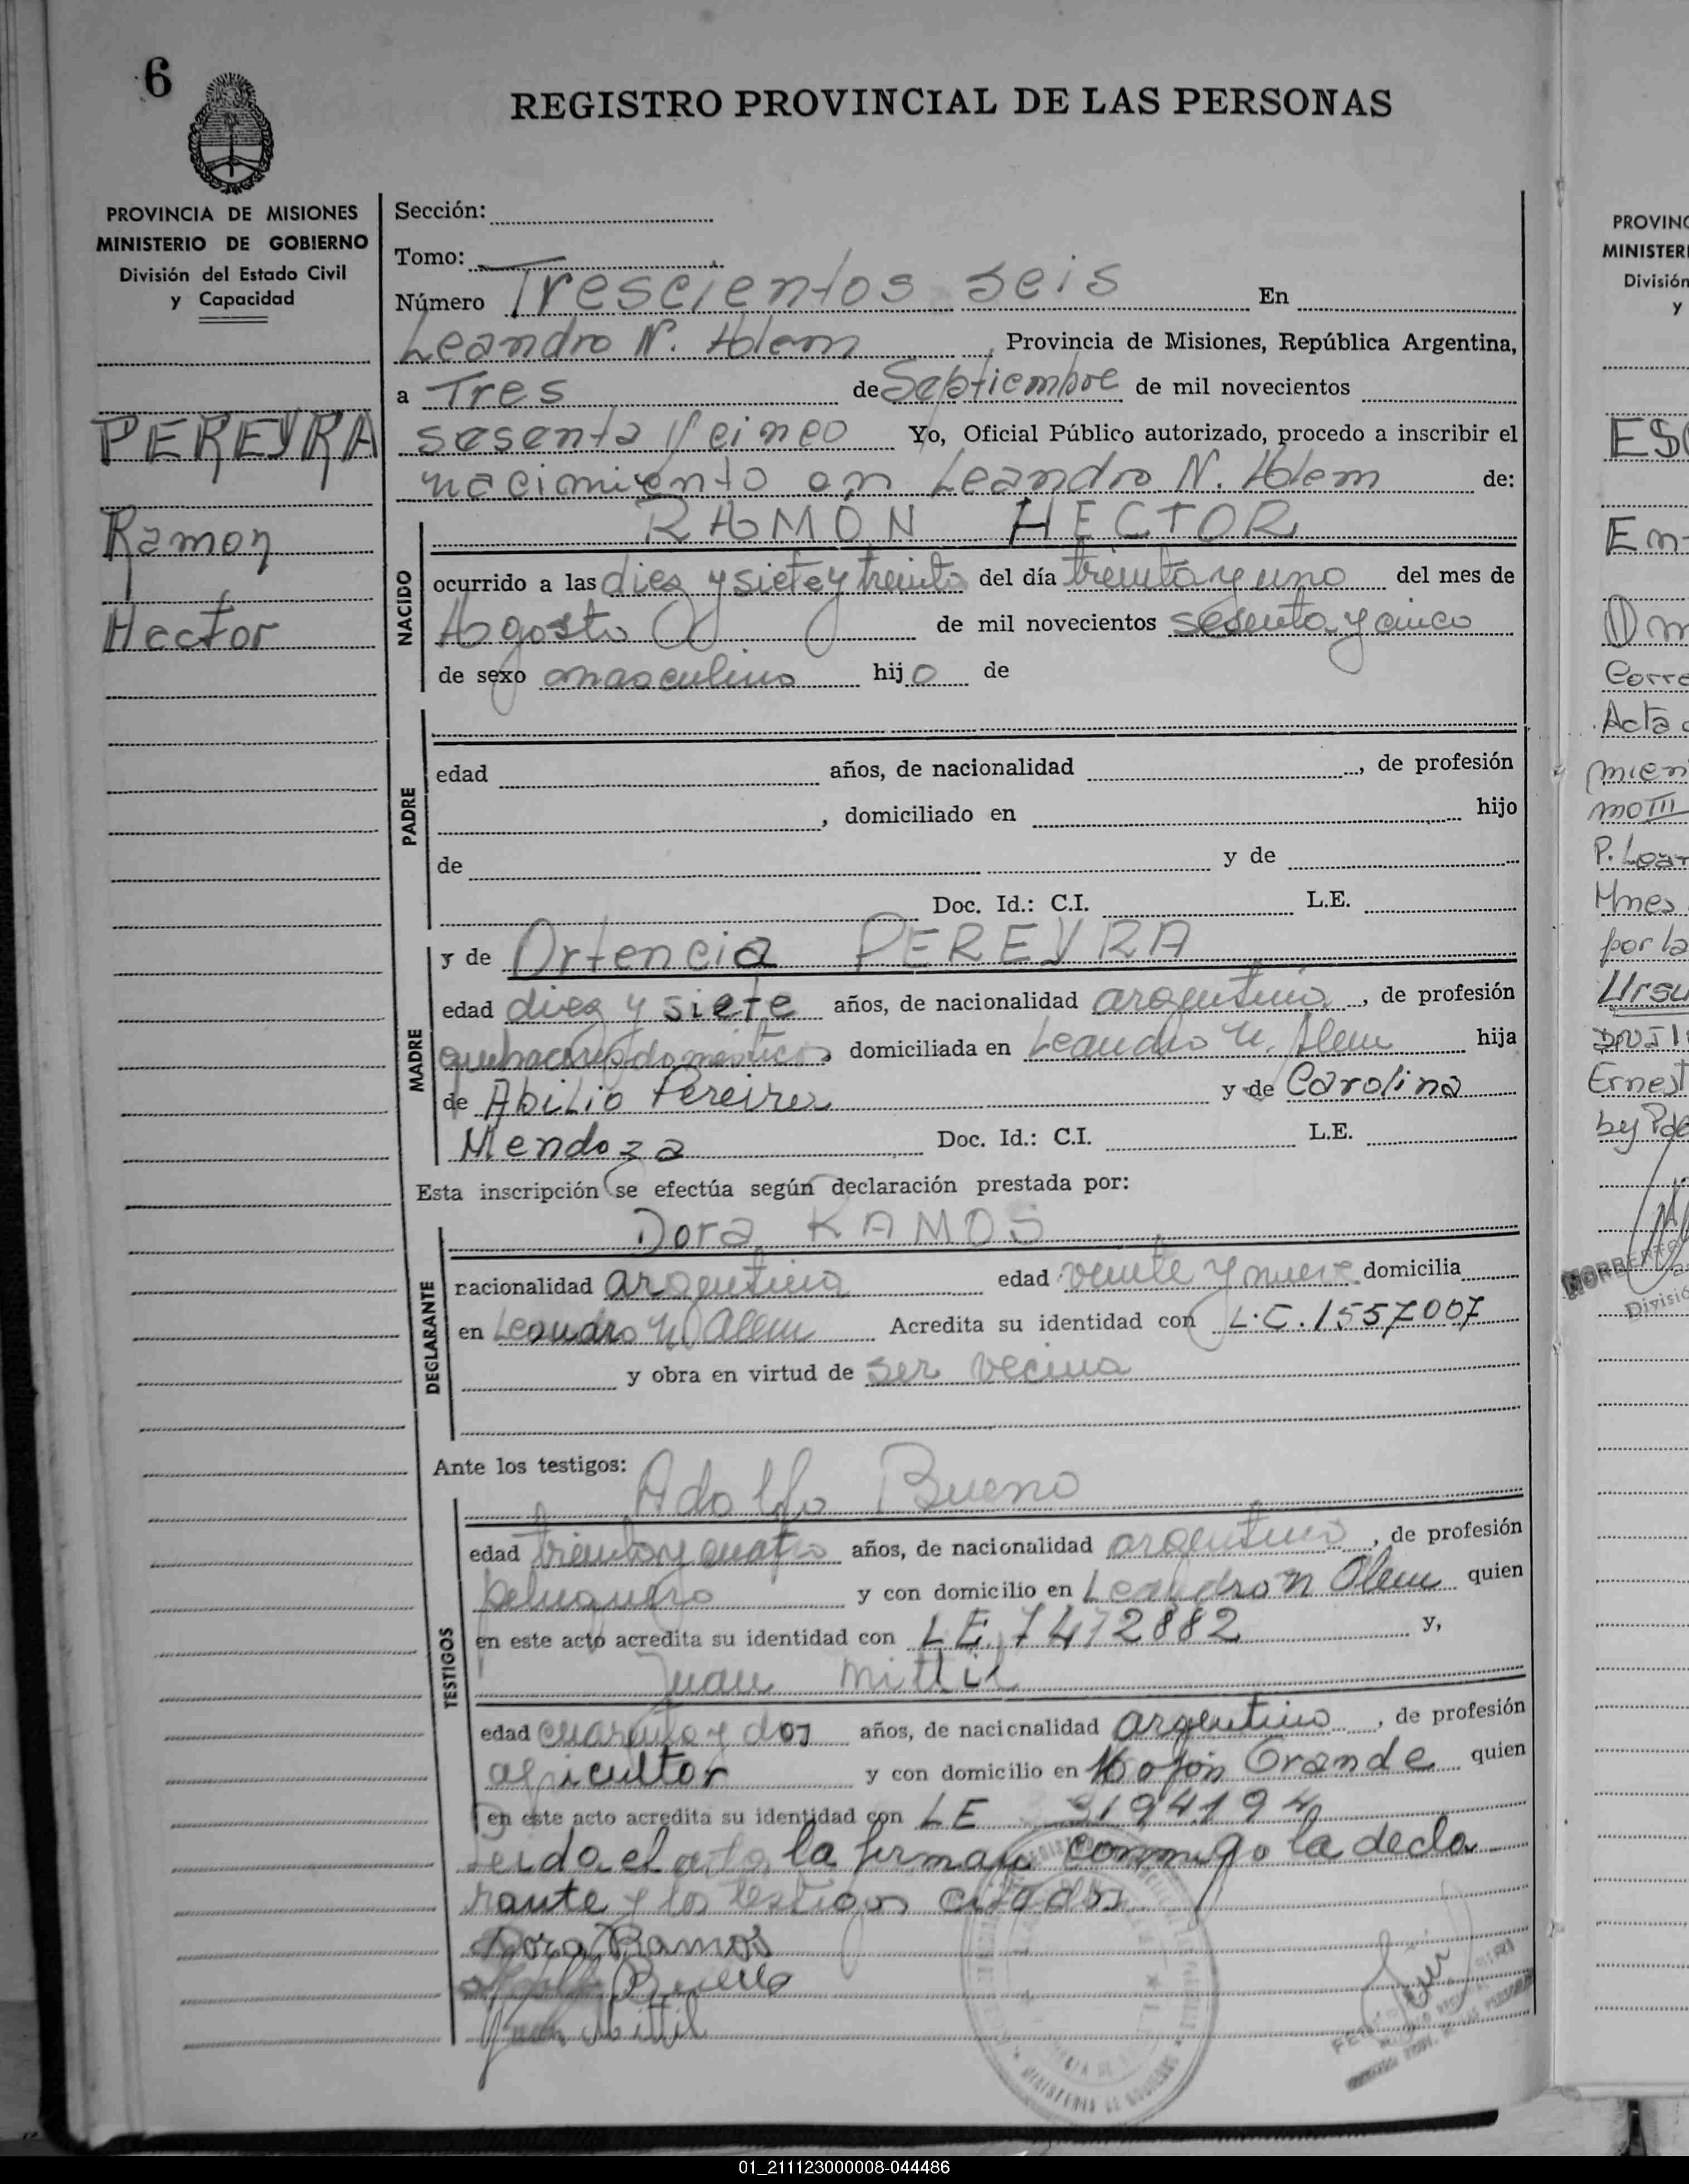 6
REGISTRO PROVINCIAL DE LAS PERSONAS
PROVINCIA DE MISIONES
MINISTERIO DE GOBIERNO
División del Estado Civil
y Capacidad
PEREYRA
Ramon
Hector
Sección:
Tomo:
Número Trescientos seis En
Leandro N. Alem, Provincia de Misiones, República Argentina,
a Tres de Septiembre de mil novecientos
sesenta y cinco Yo, Oficial Público autorizado, procedo a inscribir el
nacimiento en Leandro N. Alem de:
NACIDO
RAMON HECTOR
ocurrido a las diez y siete y treinta del día treinta y uno del mes de
Agosto de mil novecientos sesenta y cinco
de sexo masculino hijo de
PADRE
edad años, de nacionalidad , de profesión
, domiciliado en hijo
de y de
Doc. Id.: C.I. L.E.
MADRE
y de Ortencia PEREYRA
edad diez y siete años, de nacionalidad argentina, de profesión
quehaceres domesticos, domiciliada en Leandro N. Alem hija
de Abilio Pereira y de Carolina
Mendoza Doc. Id.: C.I. L.E.
Esta inscripción se efectúa según declaración prestada por:
DECLARANTE
Dora RAMOS
nacionalidad argentina edad veinte y nueve domicilia
en Leandro N Alem Acredita su identidad con L.C. 1557007
y obra en virtud de ser vecina
Ante los testigos:
TESTIGOS
Adolfo Bueno
edad treinta y cuatro años, de nacionalidad argentino, de profesión
peluquero y con domicilio en Leandro N Alem quien
en este acto acredita su identidad con LE 7472882 y,
Juan Mittil
edad cuarenta y dos años, de nacionalidad argentino, de profesión
agricultor y con domicilio en Mojón Grande quien
en este acto acredita su identidad con LE 3194194
Leida el acta la firman conmigo la decla
rante y los testigos citados
Dora Ramos
Bueno
Juan Mittil
MINISTERIO DE GOBIERNO
PROVINC
MINISTERI
División
y
ESC
En
Corre
Acta
mien
mo III
Mnes
por la
Ernest
NORBERTO
Divisi
01_211123000008-044486